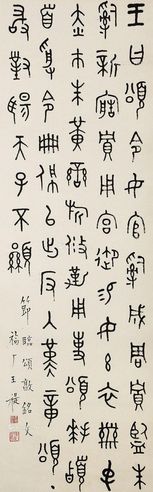 王曰頌令女官𤔲成周貯
𤔲新造貯用宮御易女玄衣黹屯
赤巿朱黃䜌旂攸勒用事頌拜𩒨
首受令冊佩以出反入堇章頌
敢對揚天子不顯
節臨頌敦銘文
福厂王禔